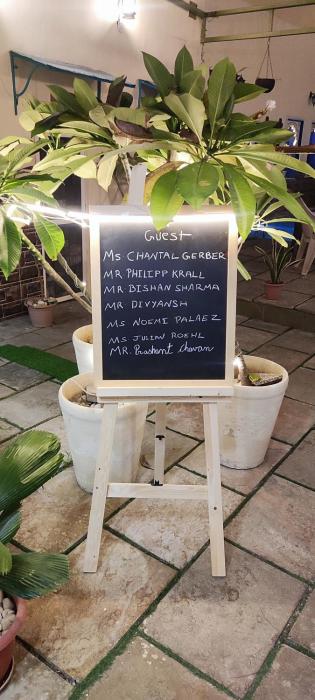 Guest
Ms CHANTAL GERBER
MR PHILIPP KRALL
MR BISHAN SHARMA
MR DIVYANSH
MS NOEMI PALAEZ
MS. JULIAN ROEHL
MR. Prashant Chavan